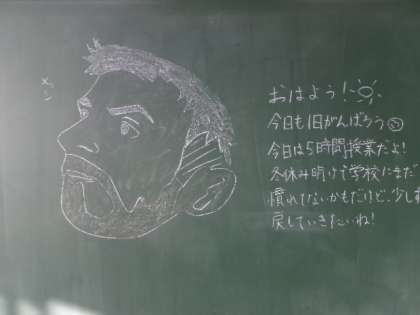 おはよう!
今日も1日がんばろう
今日は5時間授業だよ!
冬休み明けで学校にまだ
慣れてないかもだけど、少しず
戻していきたいね!